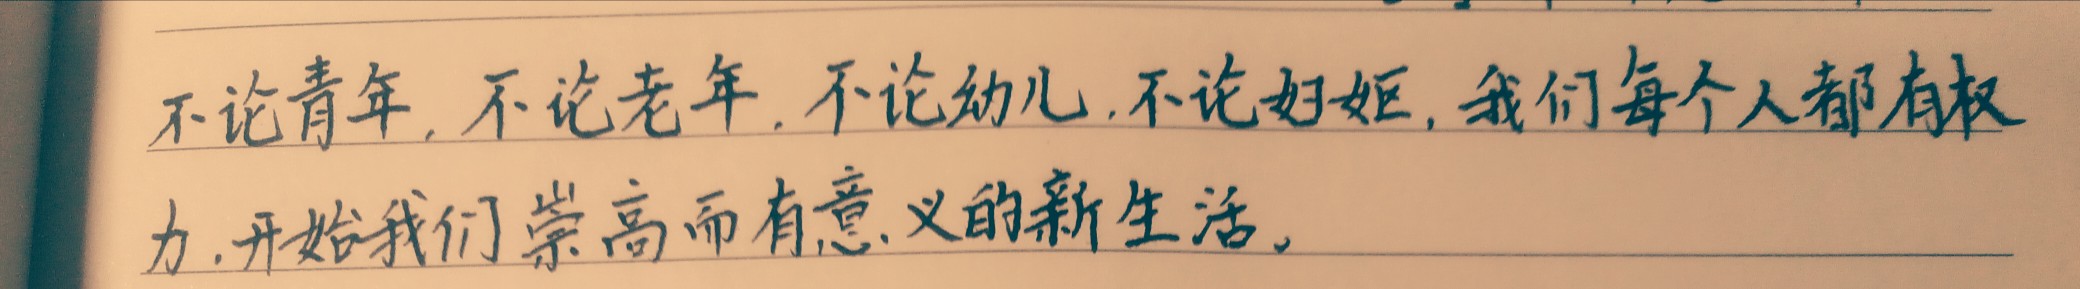 不论青年,不论老年,不论幼儿,不论妇姖,我们每个人都有权
力,开始我们崇高而有意义的新生活。